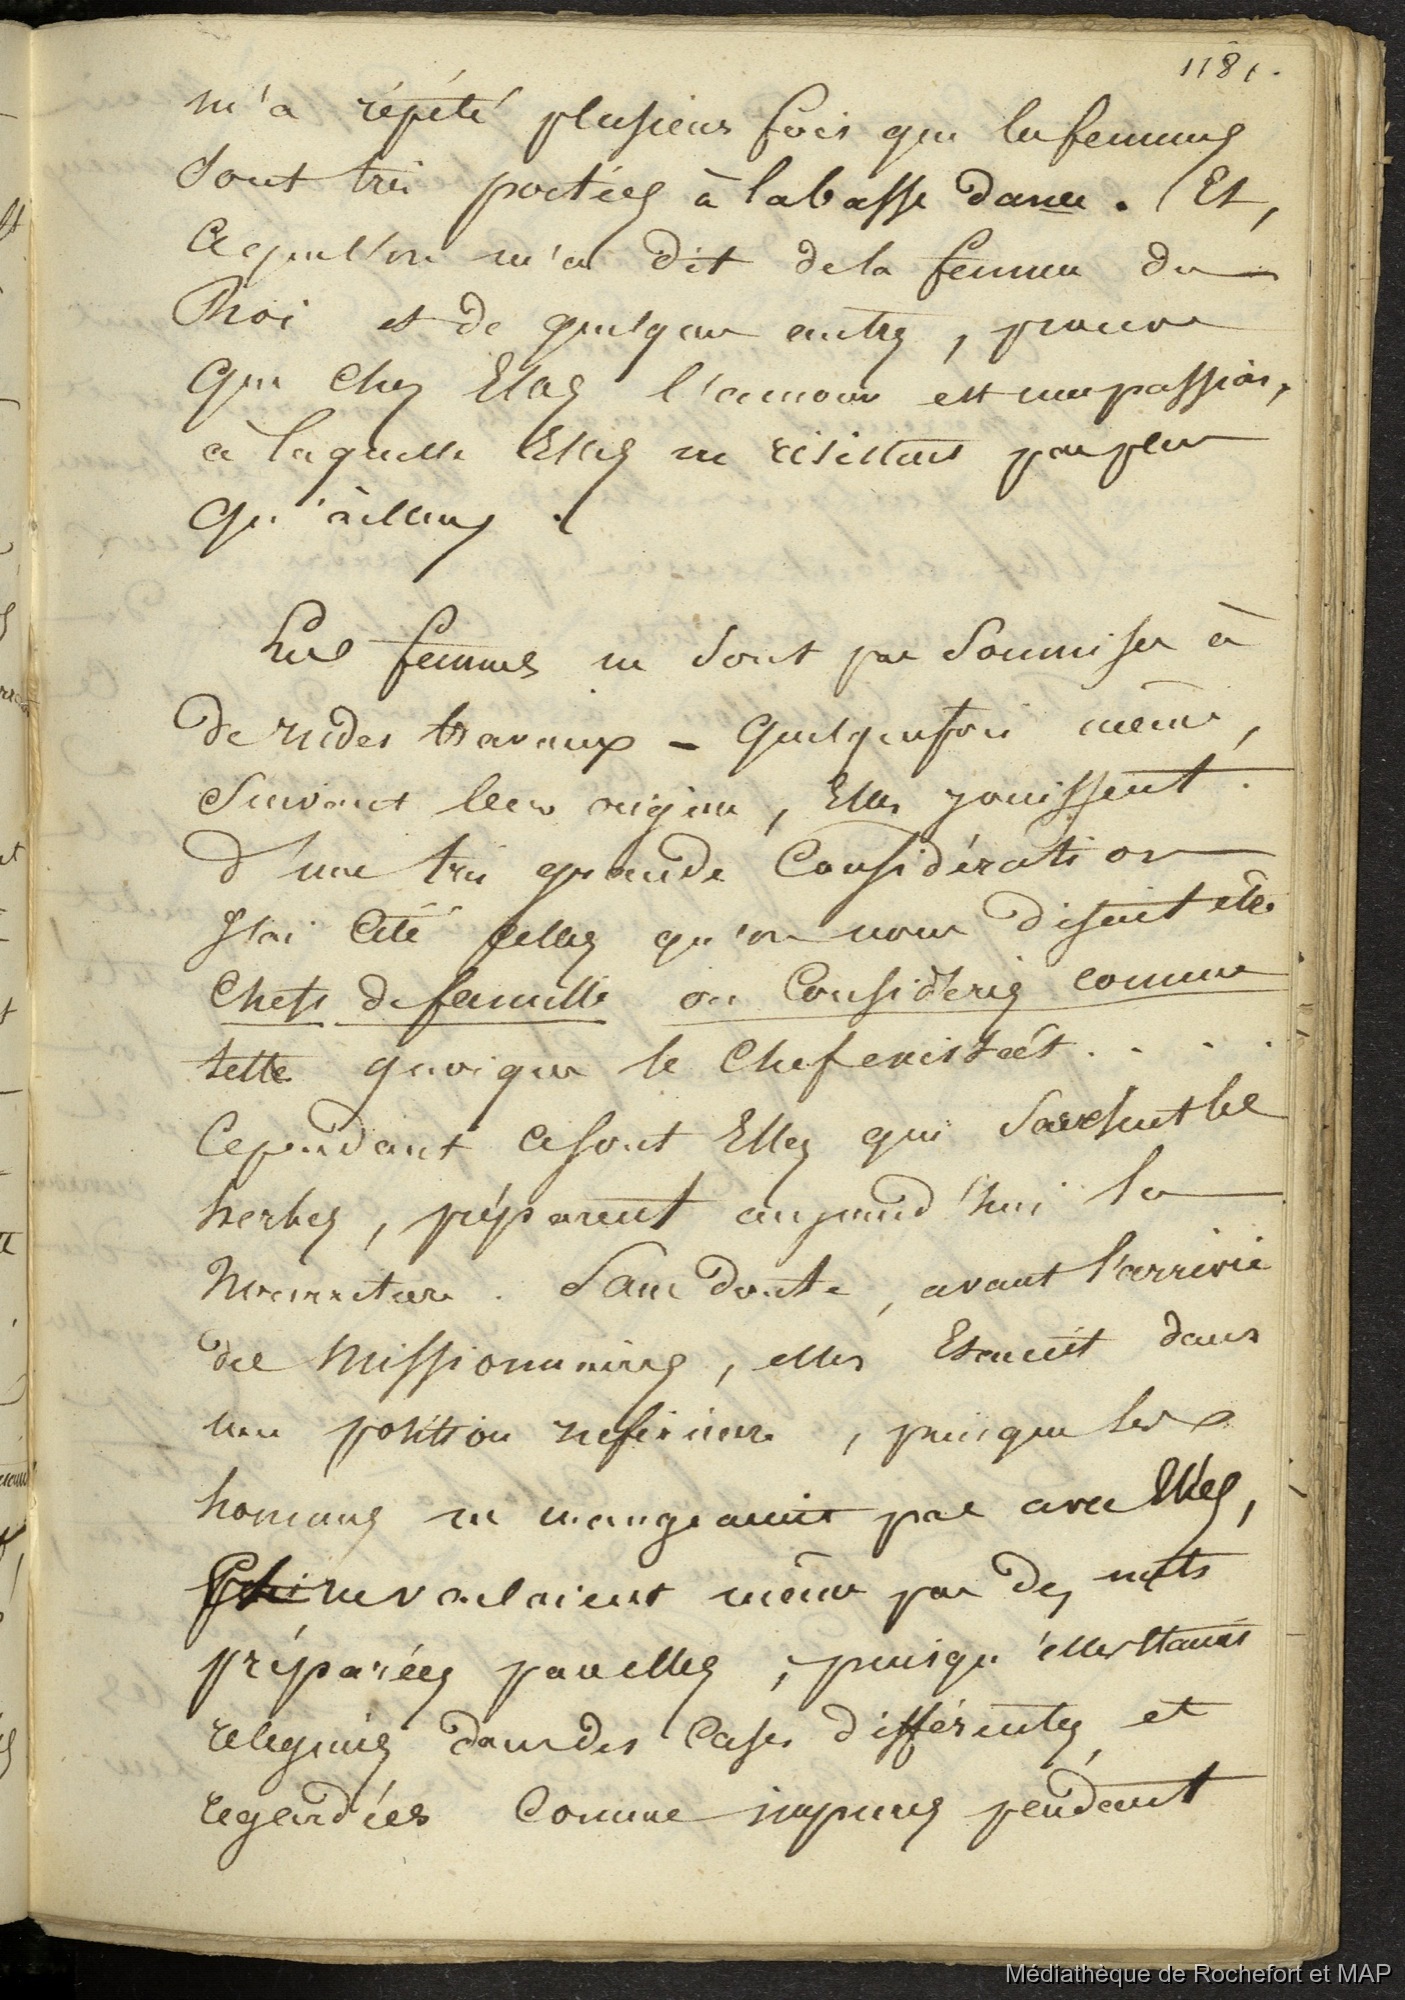 1181.
m'a répété plusieurs fois que les femmes
sont très portées à la basse danse. Et,
ce que l'on m'a dit de la femme du
Roi et de quelques autres, prouve
que chez Elles l'amour est une passion,
à laquelle Elles ne résistent pas plus
qu'ailleurs.
Les femmes ne sont pas soumises à
de rudes travaux - quelquefois même,
suivant leur origine, Elles jouissent
d'une très grande Considération
J'ai cité celles qu'on nous disait être
chefs de famille ou considérées comme
telle quoique le chef existât . . . .
Cependant ce sont Elles qui sarclent les
herbes, préparent aujourd'hui la
nourriture. Sans doute, avant l'arrivée
des Missionnaires, elles Etaient dans
une position inférieure, puisque les
hommes ne mangeaient pas avec Elles,
ne voulaient même pas des mets
préparées par elles, puisqu'elles étaient
releguées dans des cases différentes, et
regardées comme impures pendant
Médiathèque de Rochefort et MAP